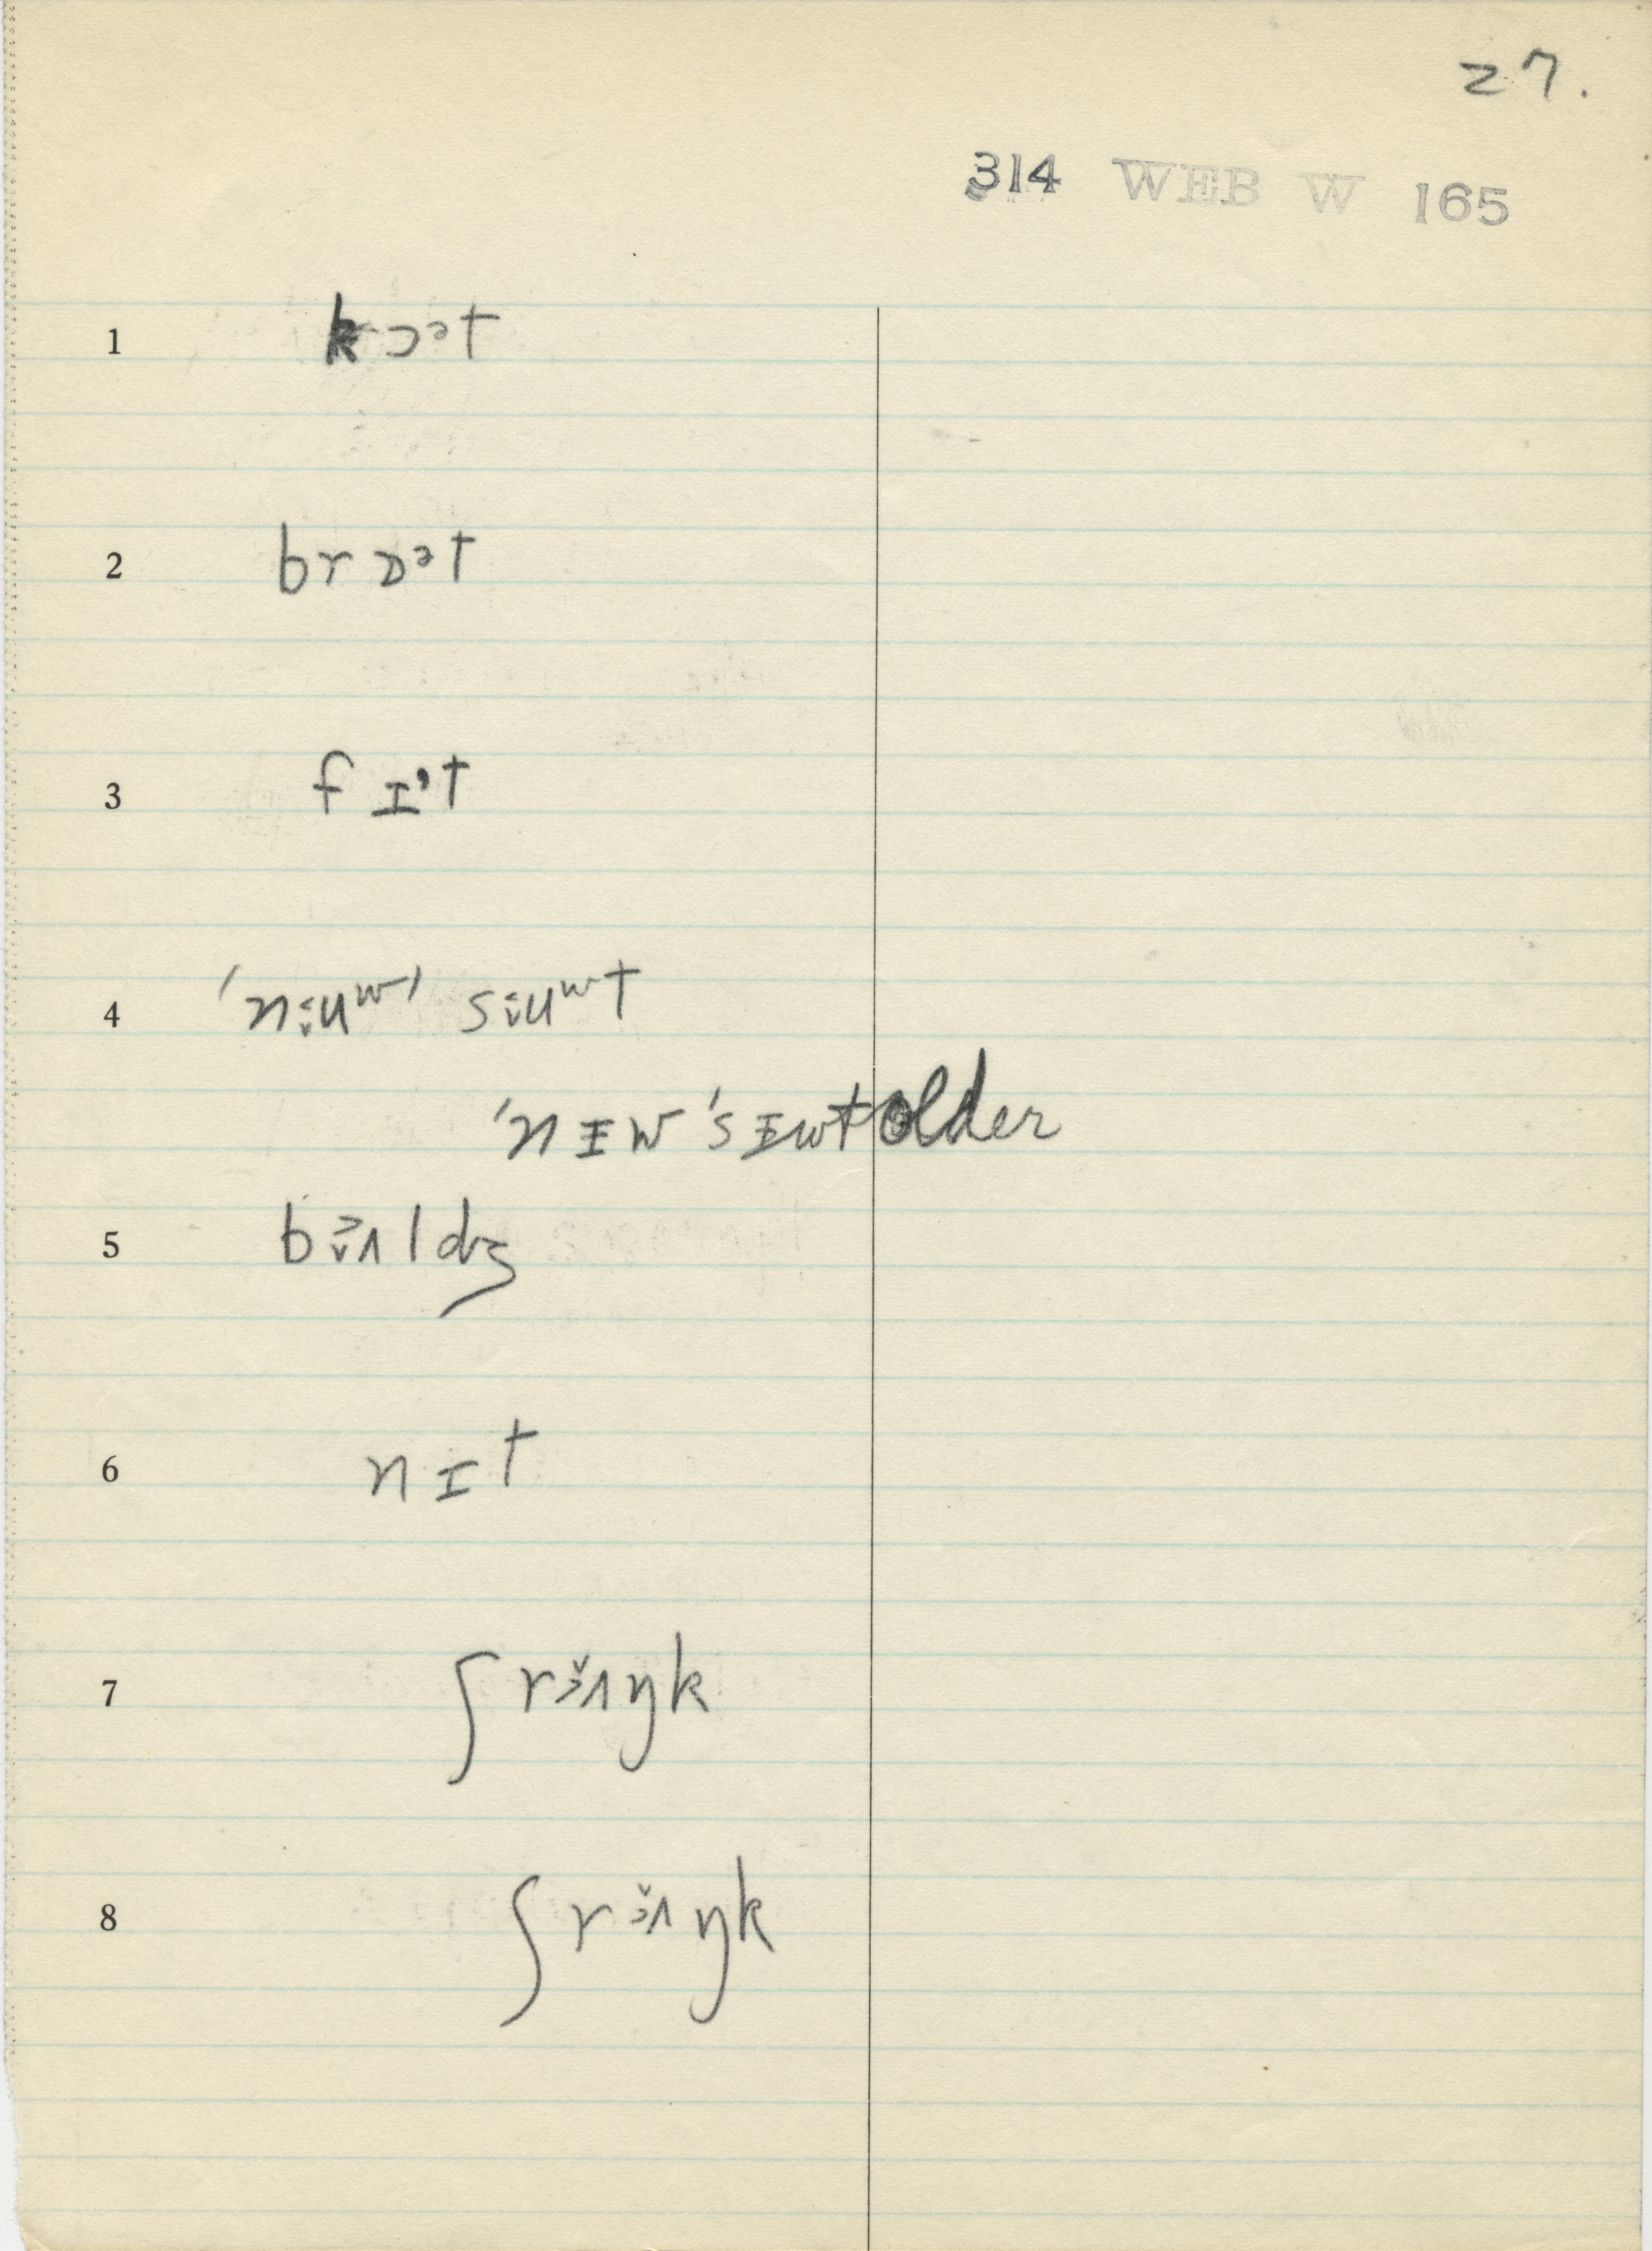 27.
314 WEB W 165
1 kɔᵊt
2 brɒᵊt
3 fɪᵊt
4 ˈni̬˂uʷˈ si̬˂uʷt
ˈnɪw ˈsɪwt older
5 bɜ̬˄ldʒ
6 nɪt
7 ʃrɜ̆˄ŋk
8 ʃrɜ̆˄ŋk